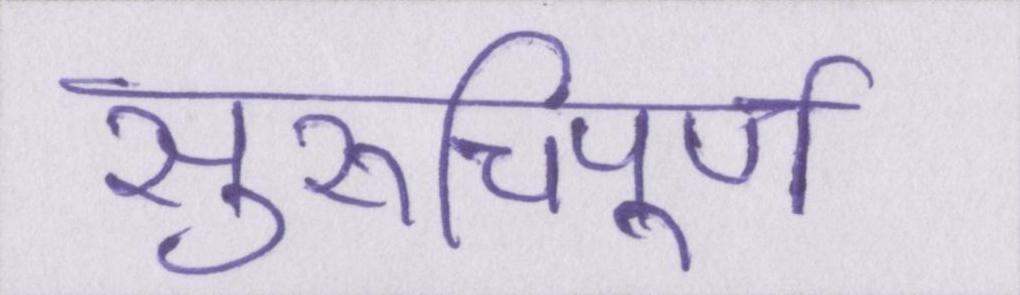 सुरूचिपूर्ण